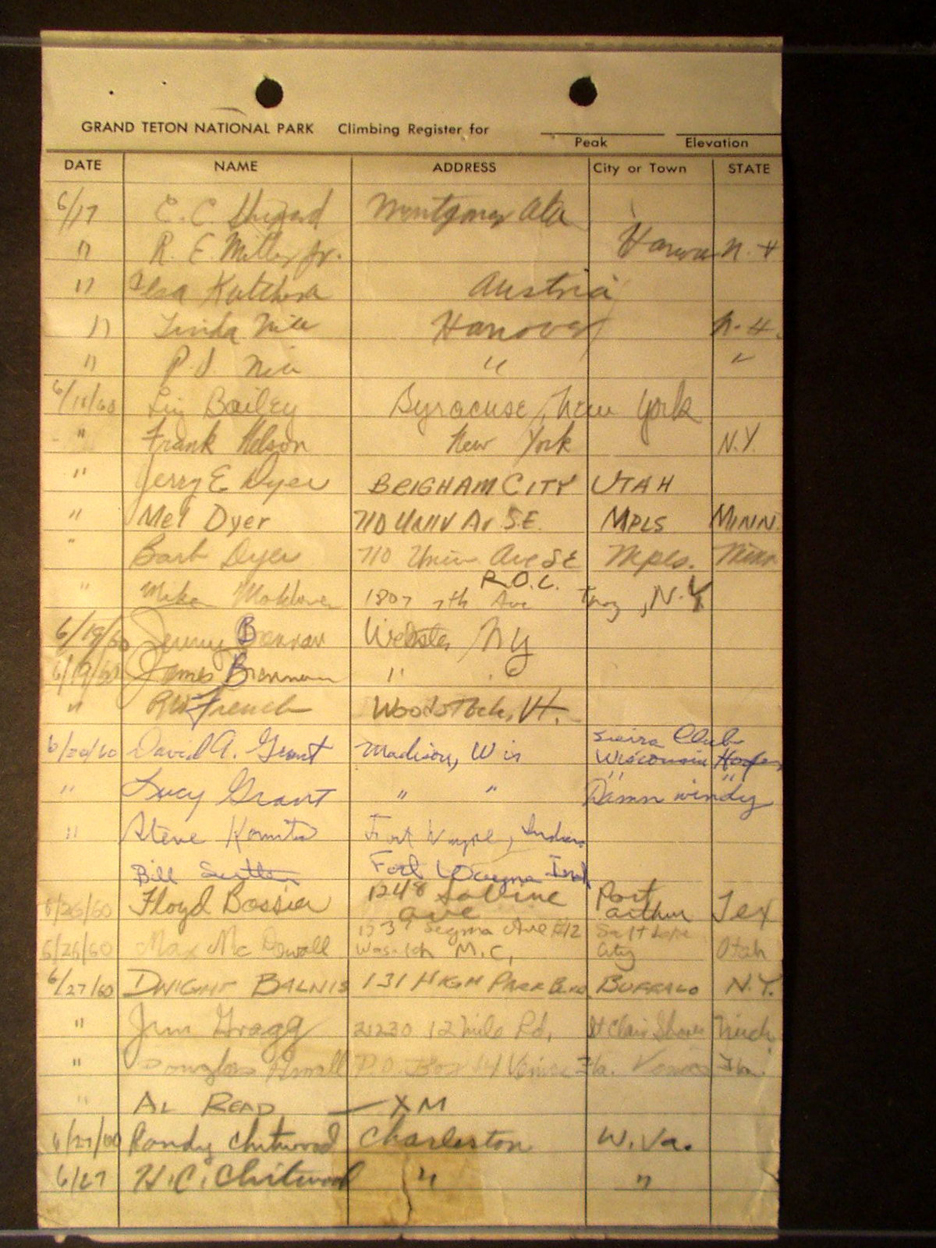 GRAND TETON NATIONAL PARK Climbing Register for
Peak Elevation
DATE NAME ADDRESS City or Town STATE
6/17 E. C. Montgomery Ala
" R. E. Miller Jr. N. H
" Austria
" Linda Hanover N. H.
" P. J. " "
6/18/60 Liz Bailey Syracuse, New York
" Frank Nelson New York N.Y.
" Jerry E Dyer BRIGHAM CITY UTAH
" Mel Dyer 710 UNIV AV S.E. MPLS MINN
" Barb Dyer 710 Univ Ave SE Mpls. Minn
R.O.C.
" Mike 1807 7th Ave Troy, N.Y
6/19/60 Webster NY
6/19/60 James Brennan " "
" French Woodstock, Vt.
6/20/60 David A. Grant Madison, Wis Sierra Club
Wisconsin Hoofers
" Lucy Grant " " " "
Damn windy
" Steve Fort Wayne, Indiana
Bill Fort Wayne Ind
6/26/60 Floyd Bossier 1248 Sabine Ave Port Arthur Tex
6/26/60 Max Mc Dowall Ave Salt Lake
M.C, City Utah
6/27/60 DWIGHT BALNIS 131 HIGH PARK BLVD. BUFFALO N.Y.
" Jim Gragg 21230 12 mile Rd, St Clair Shores Mich.
" Douglas P.O. Box 14 Venice Fla. Venice Fla.
" AL READ — XM
6/27/60 Randy Chitwood Charleston W. Va.
6/27 H. C. Chitwood " "